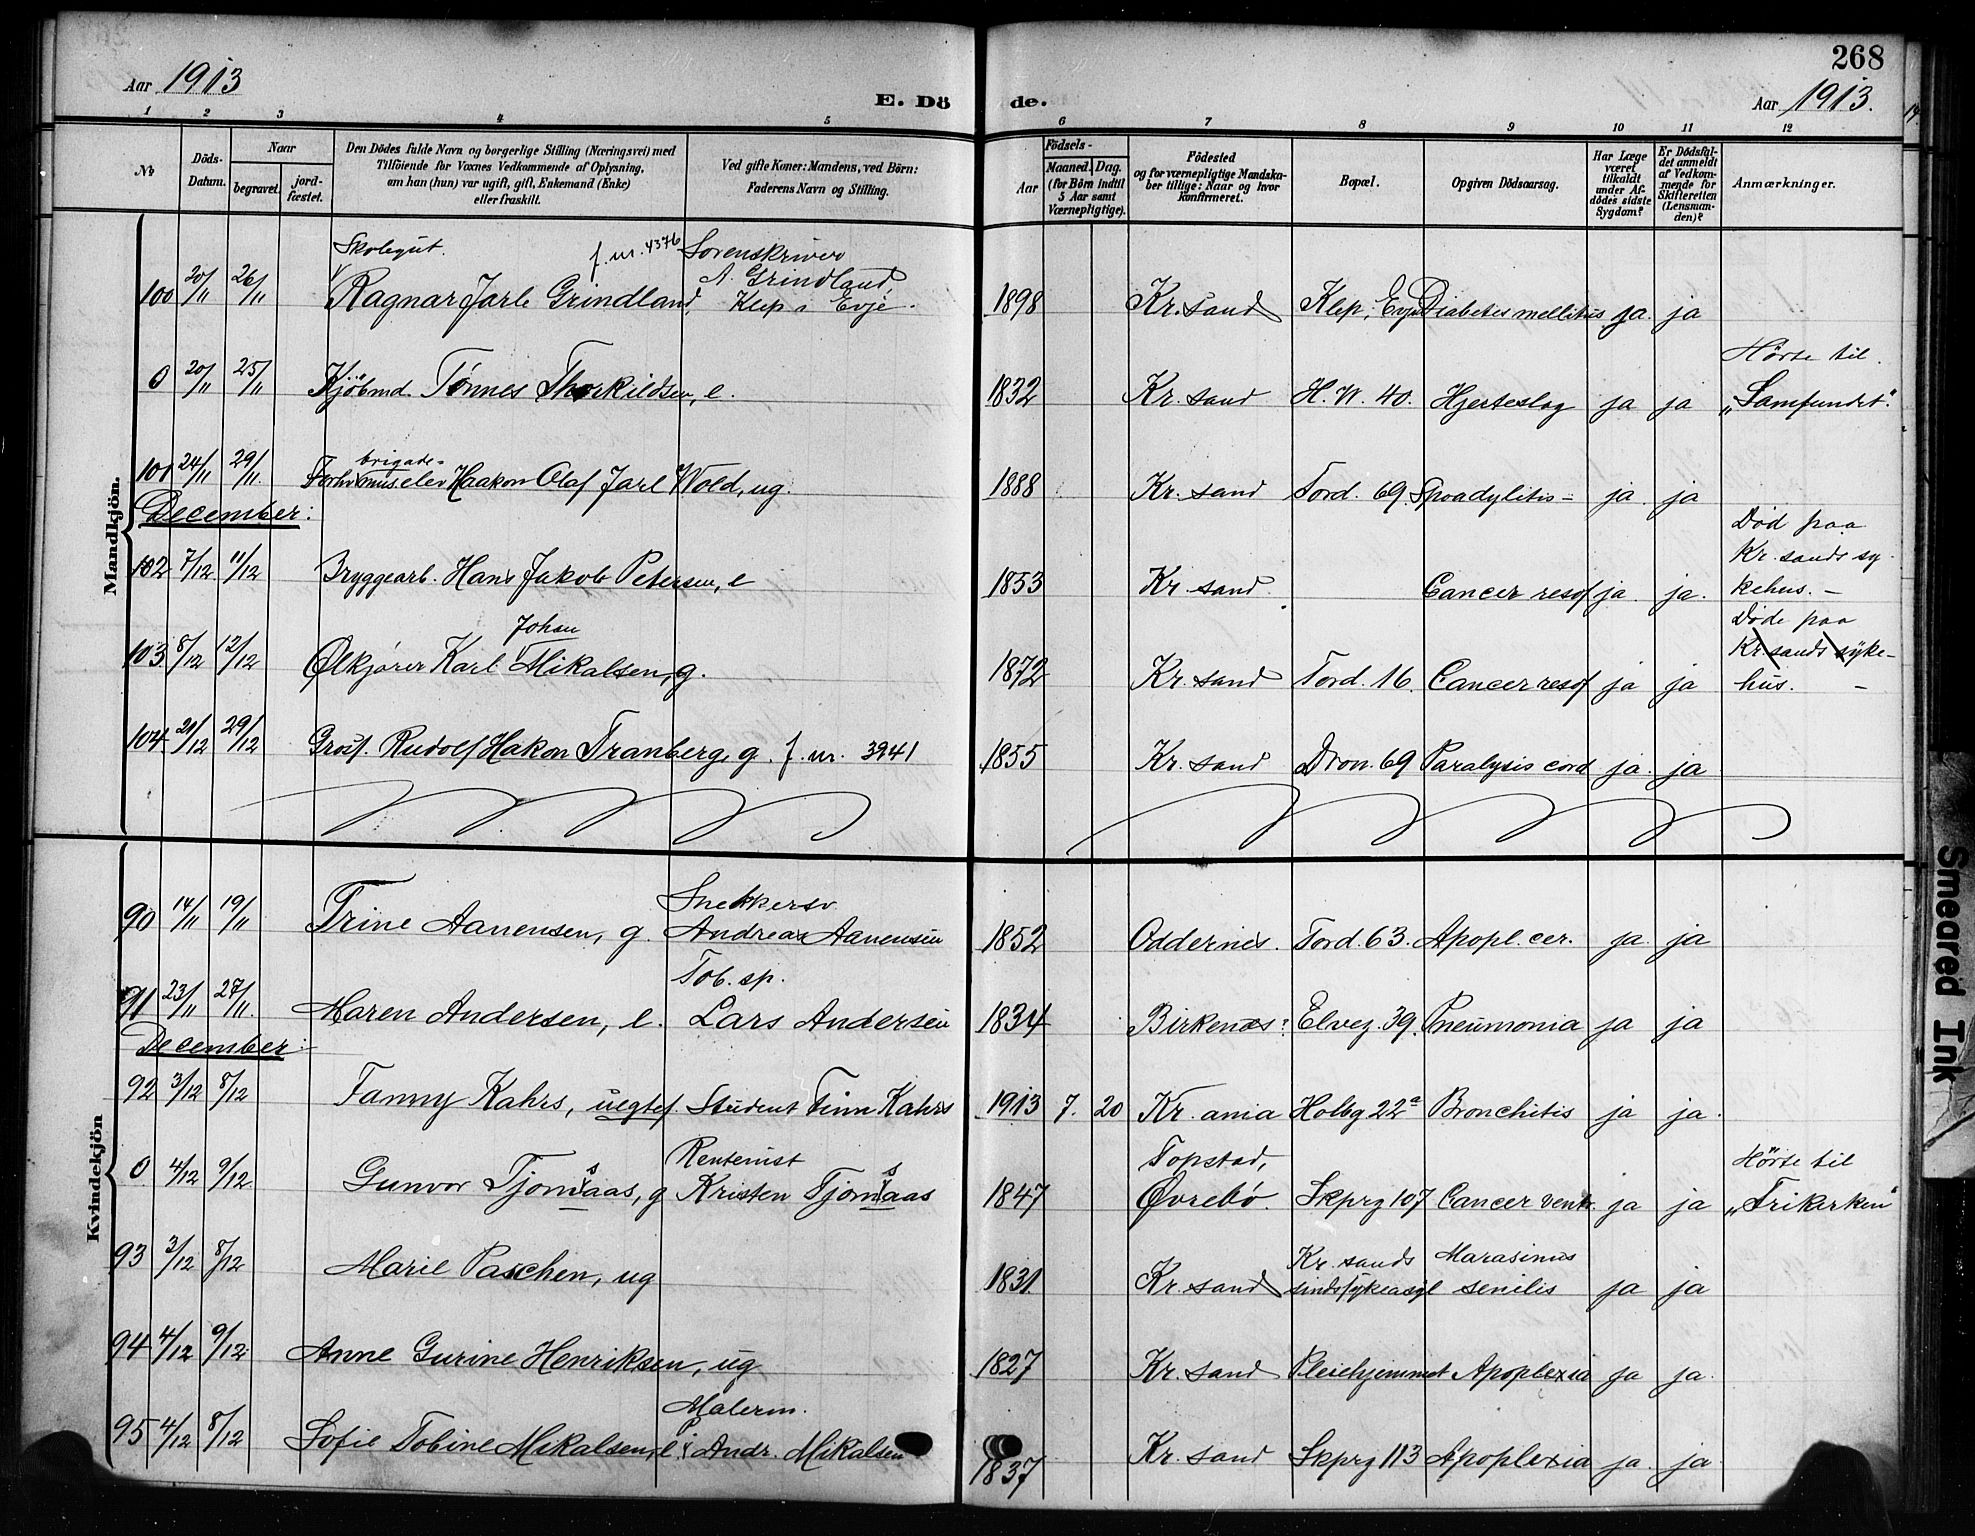 268
Aar 1913
E. Dö
de.
Aar 1913.
1 2 3 4 5 6 7 8 9 10 11 12
No
Döds-Datum.
Naar
begravet.
jord-fæstet.
Den Dödes fulde Navn og borgerlige Stilling (Næringsvei) med
Tilföiende for Voxnes Vedkommende af Oplysning,
om han (hun) var ugift, gift, Enkemand (Enke)
eller fraskilt.
Ved gifte Koner: Mandens, ved Börn:
Faderens Navn og Stilling.
Födsels-
Aar
Maaned. Dag.
(for Börn indtil
5 Aar samt
Værnepligtige).
Födested
og for værnepligtige Mandska-
ber tillige: Naar og hvor
konfirmeret.
Bopæl.
Opgiven Dödsaarsag.
Har Læge
været
tilkaldt
under Af-
dödes sidste
Sygdom?
Er Dödsfal-
det anmeldt
af Vedkom-
mende for
Skifteretten
(Lensman-
den)?
Anmærkninger.
Mandkjön.
Skolegut. f. nr. 4376 Sorenskriver
A. Grindland,
100 20/11 26/11 Ragnar Jarle Grindland, Klep i Evje. 1898 Kr. sand Klep, Evje Diabetes mellitus ja. ja
Hörte til
0 20/11 25/11 Kjöbmd. Tönnes Thorkildsen, e. 1832 Kr. sand H. W. 40. Hjerteslag ja ja "Samfundet."
brigade-
101 24/11 29/11. Forhv. mus. elev Haakon Olaf Jarl Wold, ug. 1888 Kr. sand Tord. 69. Spoadylitis - ja ja
December:
Död paa
Kr. sands sy-
102 7/12 11/12 Bryggearb. Hans Jakob Petersen, e 1853 Kr. sand. Cancer resof ja ja. kehus. -
Johan
Döde paa
Kr. sands syke-
103 8/12 12/12 Ølkjører Karl Mikalsen, g. 1872 Kr. sand Tord. 16. Cancer resof ja ja hus. -
104 21/12 29/12 Gross. Rudolf Hakon Tranberg, g. f. nr. 3941 1855 Kr. sand Dron. 69 Paralysis cord ja. ja
Kvindekjön
Snekkersv.
90 14/11 19/11 Trine Aanensen, g. Andreas Aanensen 1852 Oddernes. Tord. 63. Apopl. cer. ja ja
Tob. sp.
91 23/11 27/11. Maren Andersen, e. Lars Andersen 1834 Birkenes: Elveg. 39. Pneumonia ja ja
December:
92 3/12 8/12 Fanny Kahrs, uegtef. Student Finn Kahrs 1913 7. 20 Kr. ania Holbg 22a Bronchitis ja ja.
Rentenist Topstad, Hörte til
0 4/12 9/12 Gunvor Tjomsaas, g Kristen Tjomsaas 1847 Øvrebö. Skprg 107 Cancer ventr. ja ja "Frikirken"
Kr. sands Marasmus
93 3/12 8/12 Marie Paschen, ug 1831 Kr. sand sindssykeasyl senilis ja ja
94 4/12 9/12 Anne Gurine Henriksen, ug 1827 Kr. sand Pleiehjemmet Apoplexia ja ja.
Malerm.
95 4/12 8/12 Sofie Tobine Mikalsen, e. P. Andr. Mikalsen 1837 Kr. sand Skprg 113 Apoplexia ja ja
Smeared Ink